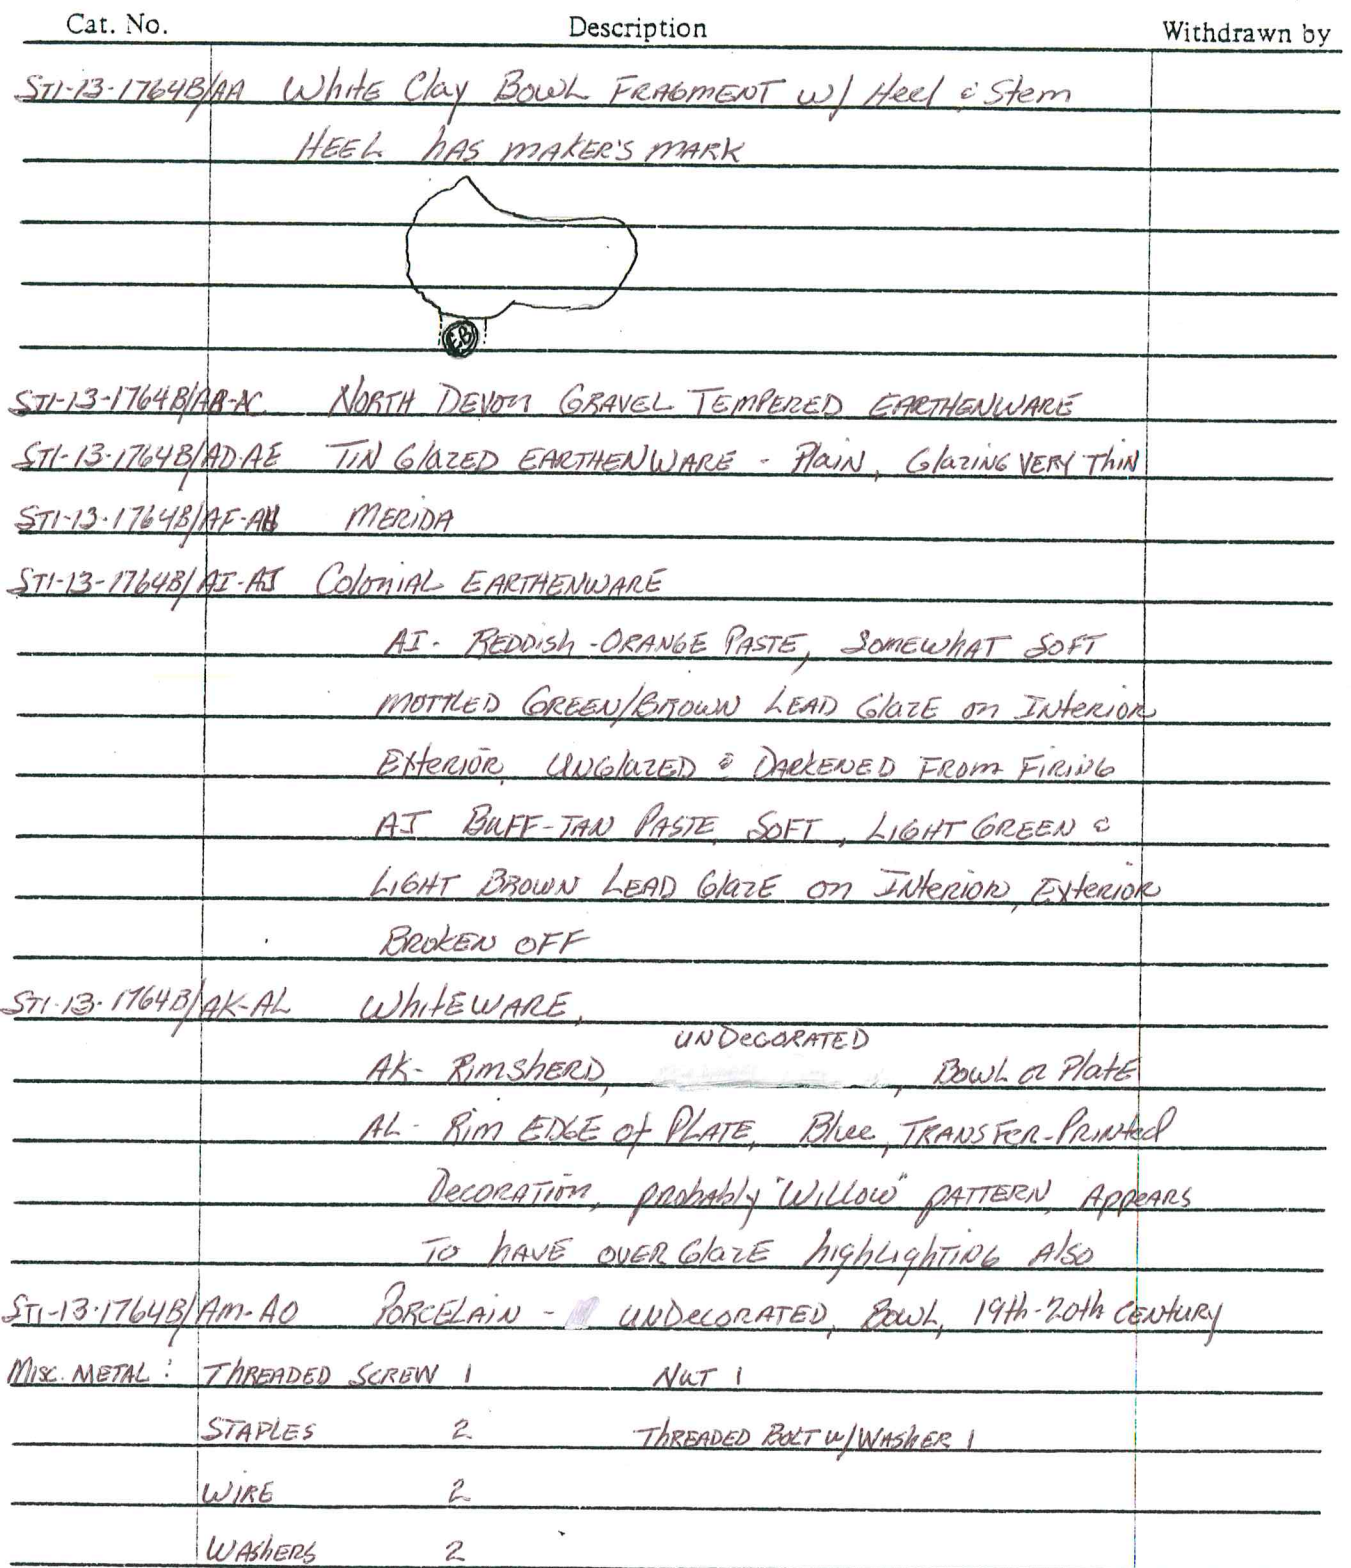 Cat. No. Description Withdrawn by
ST1-13-1764B/AA White Clay Bowl FRAGMENT w/ Heel & Stem
HEEL hAS MAKER'S MARK
EB
ST1-13-1764B/AB-AC NORTH DEVON GRAVEL TEMPERED EARTHENWARE
ST1-13-1764B/AD-AE TIN GlazED EARTHENWARE - Plain, Glazing VERY Thin
ST1-13-1764B/AF-AH MERIDA
ST1-13-1764B/AI-AJ Colonial EARTHENWARE
AI- REDDish-ORANGE PASTE, SOMEWhAT SOFT
MOTTLED GREEN/BROWN LEAD GlazE on Interior
Exterior, UNGlazED & DARKENED FROM FIRING
AJ BUFF-TAN PASTE, SOFT, LIGHT GREEN &
LIGHT BROWN LEAD GlazE on Interior, Exterior
BROKEN OFF
ST1-13-1764B/AK-AL WhitEWARE,
AK- RimShERD, UNDecORATED, Bowl or PlatE
AL- Rim EDGE of PLATE, Blue, TRANSFER-PRINTed
DecORATION, probably "Willow" pATTERN, AppeARS
To hAVE OVER GlazE highlighting Also
ST1-13-1764B/AM-AO PORCELAIN - UNDecORATED, Bowl, 19th-20th CENTURY
Misc. METAL: ThREADED SCREW 1 NUT 1
STAPLES 2 ThREADED BOLT w/WASher 1
WIRE 2
WAShERS 2